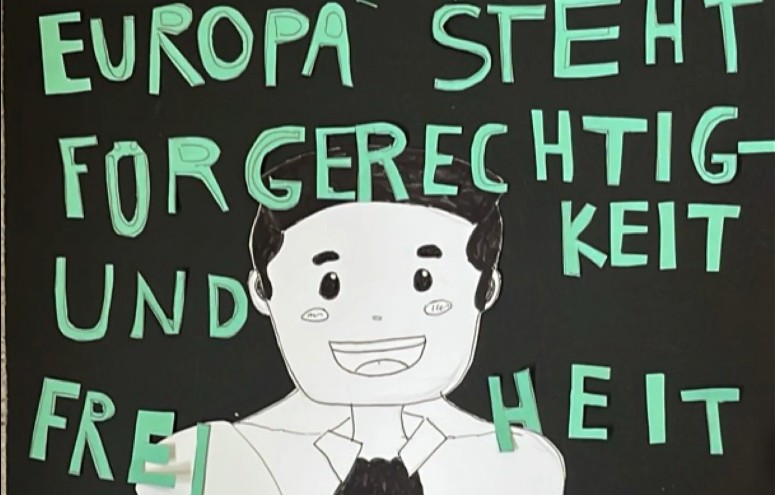 EUROPA STEHT
FORGERECHTIG-
KEIT
UND
FREIHEIT